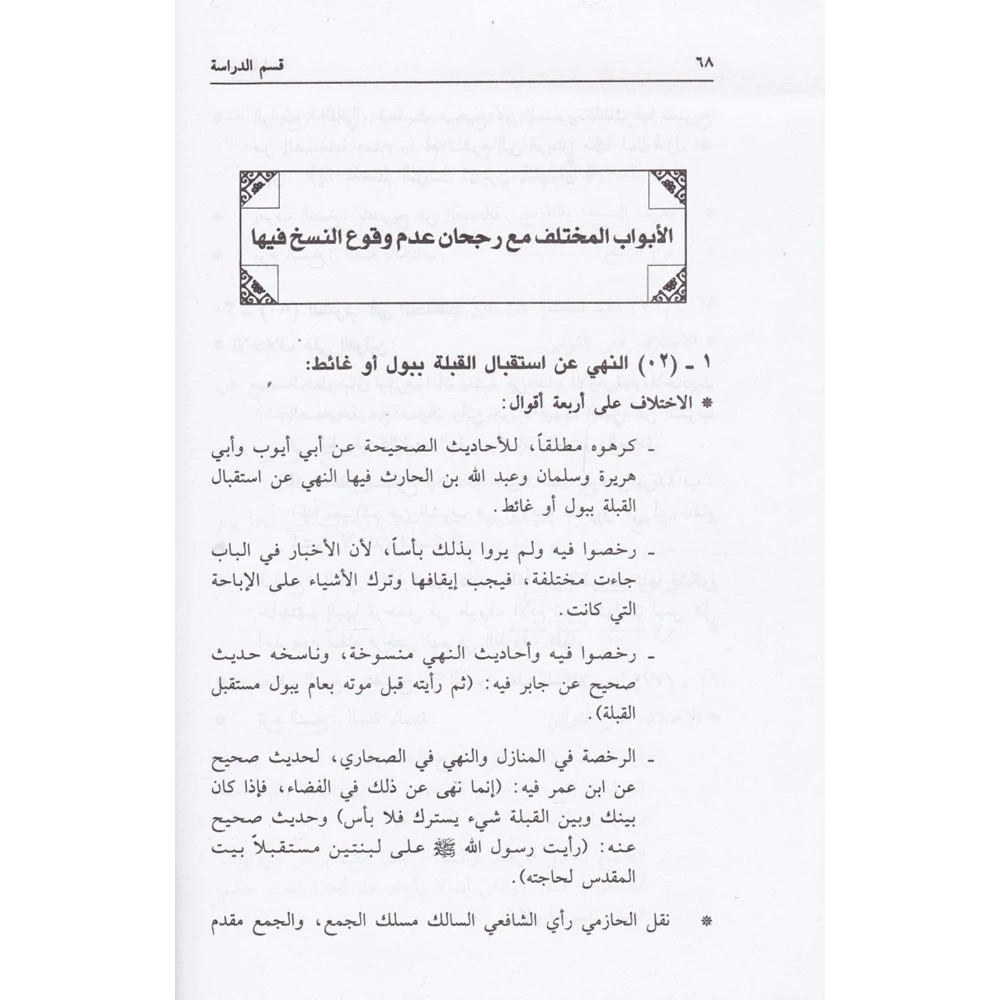 ٦٨
قسم الدراسة
الأبواب المختلف مع رجحان عدم وقوع النسخ فيها
١ ـ (٠٢) النهي عن استقبال القبلة ببول أو غائط:
* الاختلاف على أربعة أقوال:
ـ كرهوه مطلقاً، للأحاديث الصحيحة عن أبي أيوب وأبي
هريرة وسلمان وعبد الله بن الحارث فيها النهي عن استقبال
القبلة ببول أو غائط.
ـ رخصوا فيه ولم يروا بذلك بأساً، لأن الأخبار في الباب
جاءت مختلفة، فيجب إيقافها وترك الأشياء على الإباحة
التي كانت.
ـ رخصوا فيه وأحاديث النهي منسوخة، وناسخه حديث
صحيح عن جابر فيه: (ثم رأيته قبل موته بعام يبول مستقبل
القبلة).
ـ الرخصة في المنازل والنهي في الصحاري، لحديث صحيح
عن ابن عمر فيه: (إنما نهى عن ذلك في الفضاء، فإذا كان
بينك وبين القبلة شيء يسترك فلا بأس) وحديث صحيح
عنه: (رأيت رسول الله ﷺ على لبنتين مستقبلاً بيت
المقدس لحاجته).
* نقل الحازمي رأي الشافعي السالك مسلك الجمع، والجمع مقدم